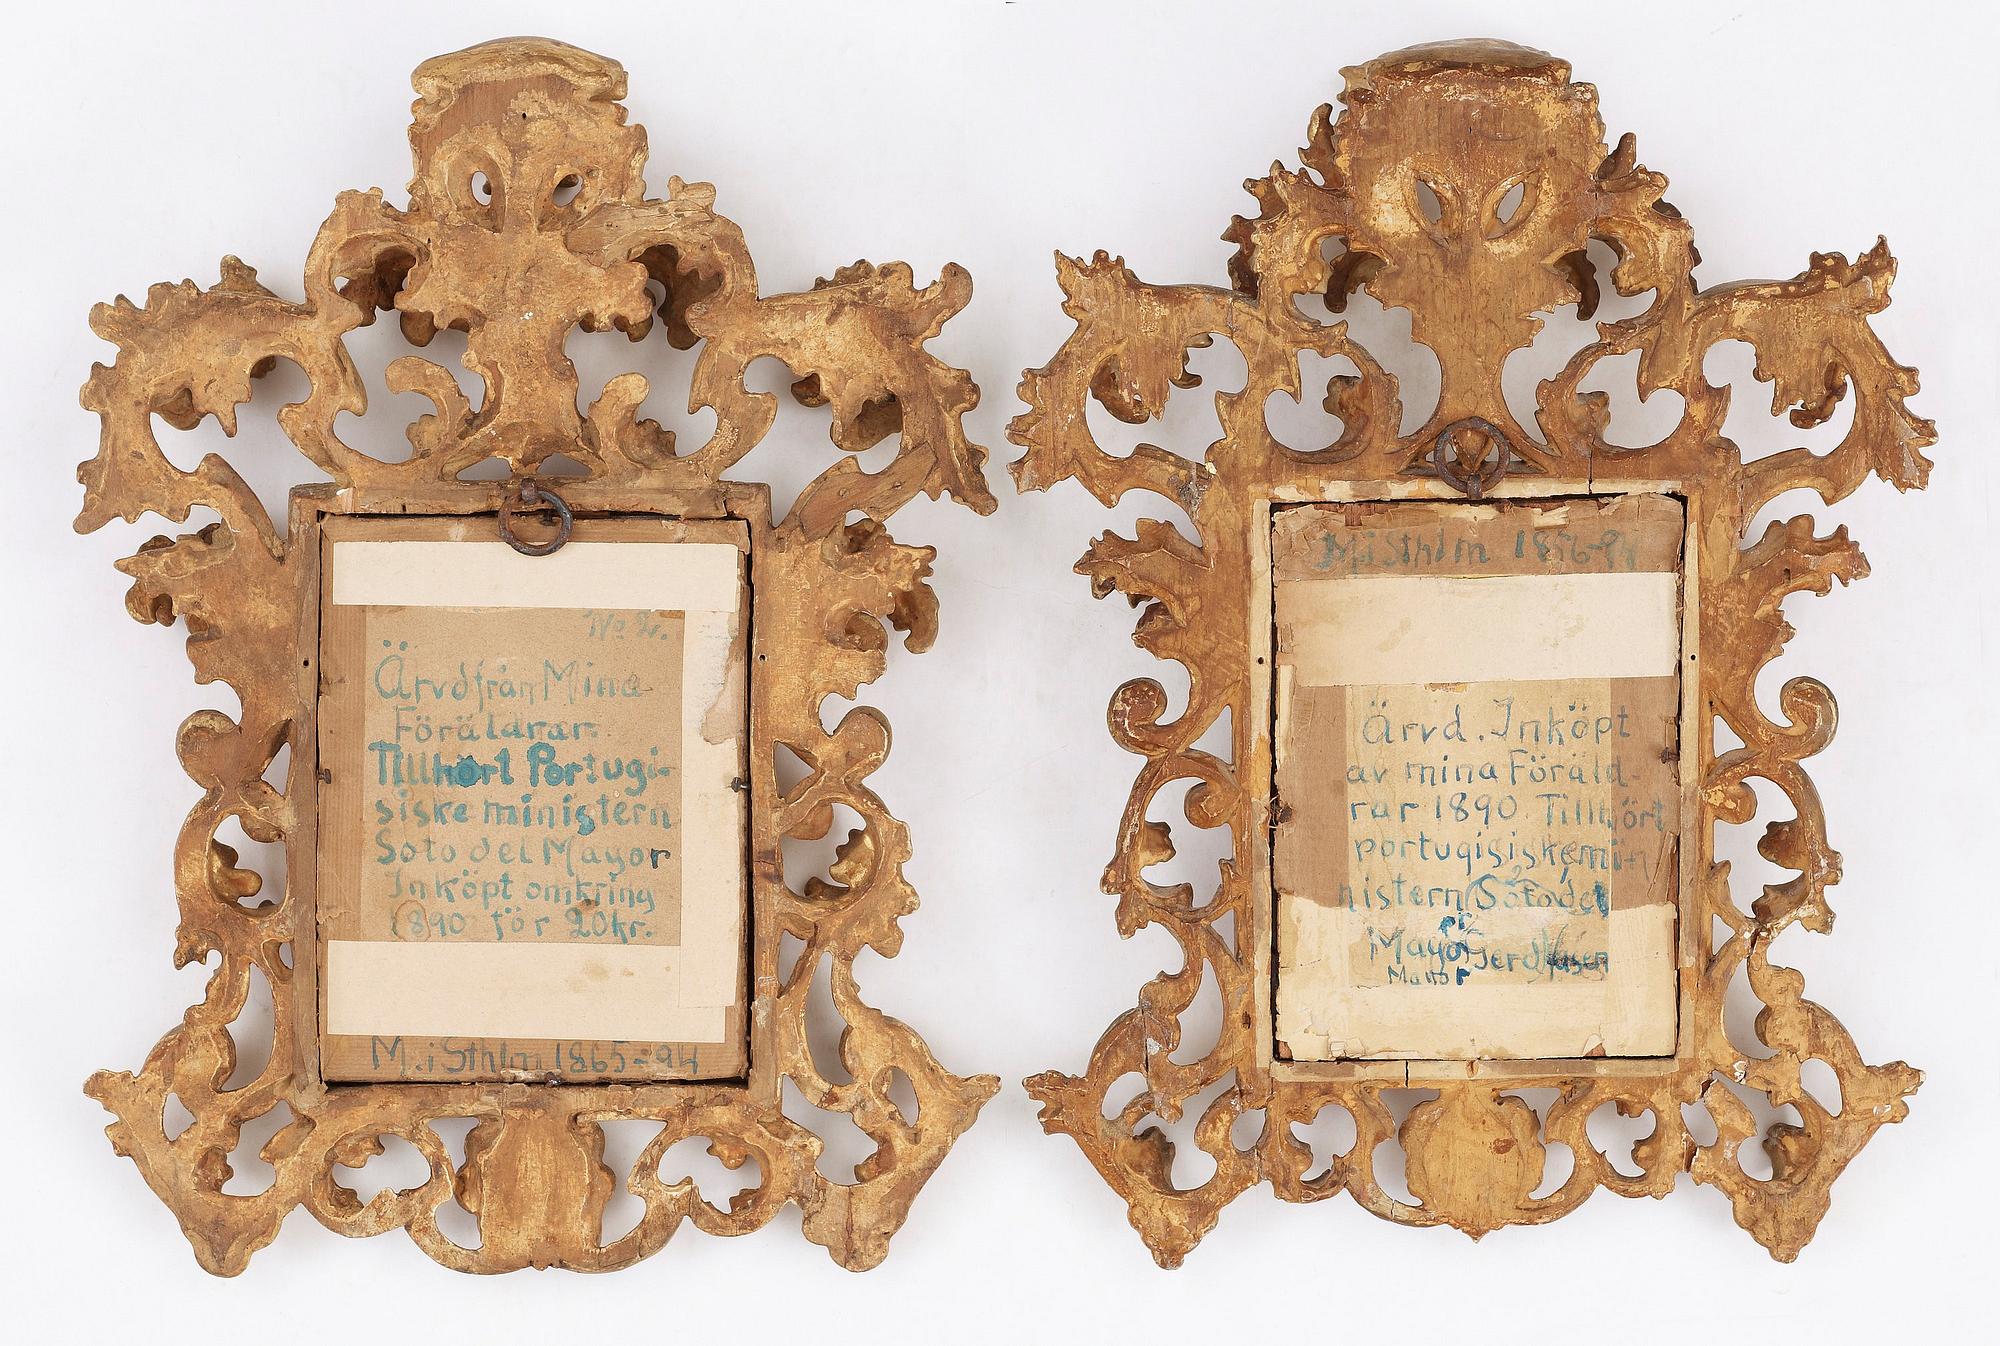 No 2.
Ärvd från Mina
Föräldrar.
Tillhört Portugi-
siske ministern
Soto del Mayor
Inköpt omkring
1890 för 20kr.
M. i Sthlm 1865-94
M. i Sthlm 1856-94
Ärvd. Inköpt
av mina Föräld-
rar 1890. Tillhört
portugisiske mi-
nistern Soto del
Mayor Gerd
Mayor